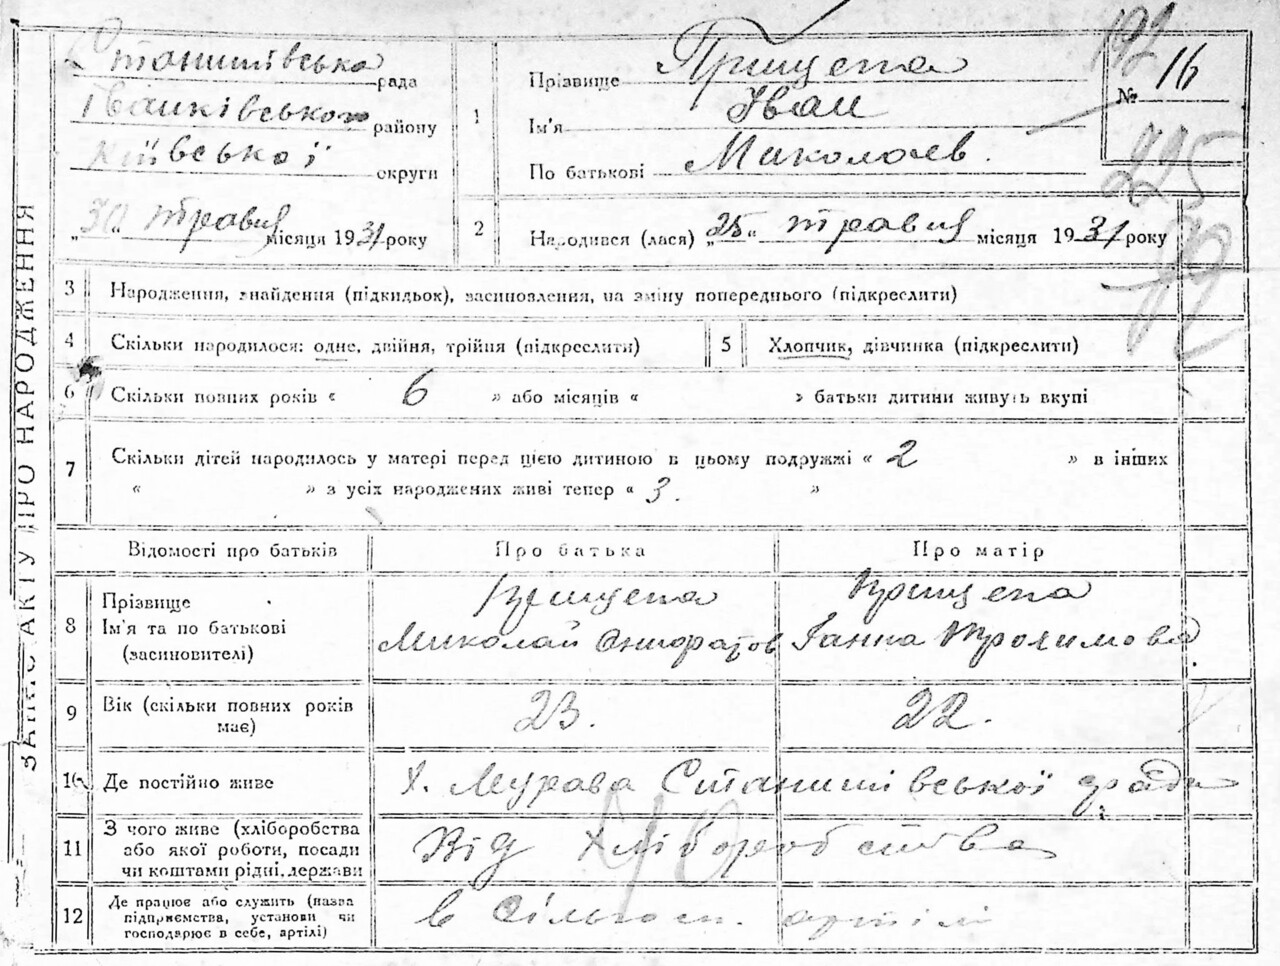 ЗАПИС АКТУ ПРО НАРОДЖЕННЯ
Станишівська рада
Іванківського району
Київської округи
„30“ травня місяця 1931 року
1
Прізвище Прищепа
Ім'я Іван
По батькові Миколаєв.
192
№ 16
225
2
Народився (лася) „25“ травня місяця 1931 року
3 Народження, знайдення (підкидьок), засиновлення, на зміну попереднього (підкреслити)
4 Скільки народилося: одне, двійня, трійня (підкреслити)
5 Хлопчик, дівчинка (підкреслити)
6 Скільки повних років « 6 » або місяців « » батьки дитини живуть вкупі
7 Скільки дітей народилось у матері перед цією дитиною в цьому подружжі « 2 » в інших
« » з усіх народжених живі тепер « 3. »
Відомості про батьків Про батька Про матір
8 Прізвище Прищепа Прищепа
Ім'я та по батькові Миколай Ганна Трохимова
(засиновителі)
9 Вік (скільки повних років має) 23. 22.
10 Де постійно живе Х. Мурава Станишівської ради
11 З чого живе (хліборобства
або якої роботи, посади
чи коштами рідні, держави Від хліборобства
12 Де працює або служить (назва
підприємства, установи чи
господарює в себе, артілі) в Сільгосп. артілі